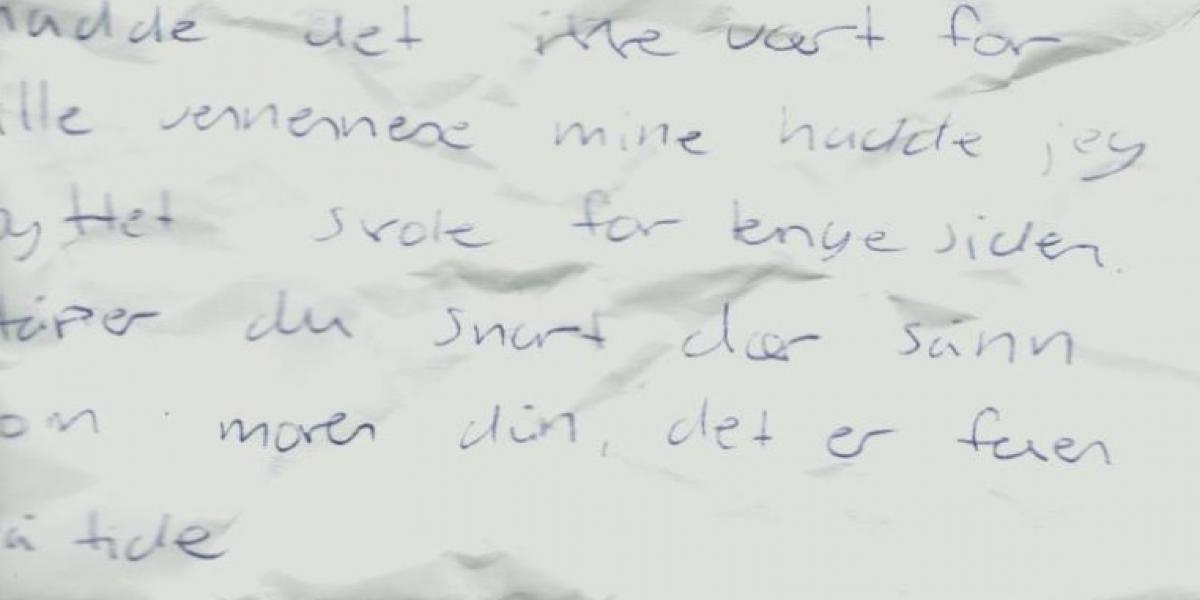 hadde det ikke vært for
alle vennenene mine hadde jeg
byttet skole for lenge siden.
håper du snart dør sånn
som moren din, det er faen
på tide